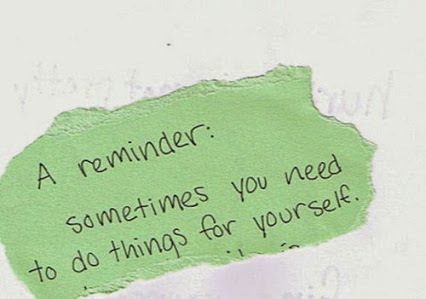 A reminder:
sometimes you need
to do things for yourself.